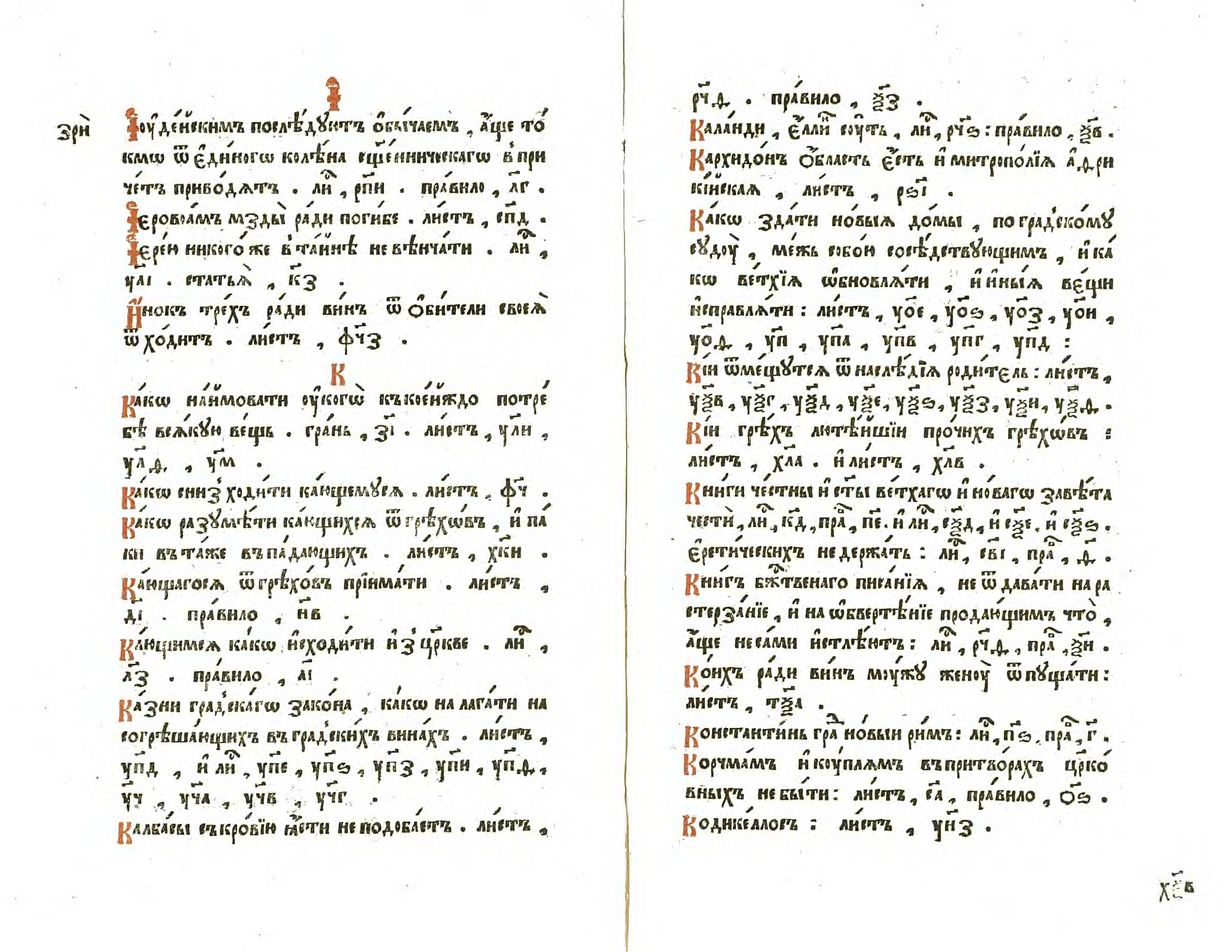 І
зрѝ
Іоуде́йскимъ послѣ́дуютъ ѻ҆бы́чаемъ , а҆́ще то́
кмѡ ѿ є҆ди́нагѡ колѣ́на сщ҃е́нническагѡ в при
че́тъ приво́дятъ . ли́ , рпи . пра́вило , лг .
Іеровоа́мъ мзды̀ ра́ди поги́бе . ли́стъ , спд .
Іере́ю никого́же в та́йнѣ не вѣнча́ти . ли́ ,
уаі . статья̀ , кз .
И҆́нокъ тре́хъ ра́ди ви́нъ ѿ ѻ҆би́тели своея̀
ѿхо́дитъ . ли́стъ , фчз .
К
Ка́кѡ наи҆мова́ти оу҆ кого̀ къ ко́ейждо потре́
бѣ вся́кую ве́щь . гра́нь , зі . ли́стъ , ули ,
улѳ , ум .
Ка́кѡ снизходи́ти ка́ющемуся . ли́стъ , фч .
Ка́кѡ разумѣ́ти ка́ющихся ѿ грѣхѡ́въ , и҆ па́
ки въ та́же въпа́дающихъ . ли́стъ , хки .
Ка́ющагося ѿ грѣхо́въ прїима́ти . ли́стъ ,
ді . пра́вило , нв .
Ка́ющимся какѡ и҆сходи́ти и҆з̾ цр҃кве . ли́ ,
лз . пра́вило , аі .
Ка́зни гра́дскагѡ зако́на , ка́кѡ налага́ти на
согрѣша́ющихъ въ гра́дскихъ вина́хъ . ли́стъ ,
упд , и҆ ли́ , упе , упѕ , упз , упи , упѳ ,
уч , уча , учв , учг .
Калба́сы съ кро́вїю ꙗ҆́сти не подоба́етъ . ли́стъ ,
рчѳ . пра́вило , ѯз .
Кала́нди , є҆́лли су́ть , ли́ , рчѕ : пра́вило , ѯв .
Кархидо́нъ ѻ҆́бласть є҆́сть и҆ митропо́лїя а҆фри
кі́йская , ли́стъ , рѕі .
Ка́кѡ зда́ти но́выя до́мы , по гра́дскому
судоу̀ , межь собо́ю сосѣ́дствующимъ , и҆ ка́
кѡ ве́тхїя ѡ҆бновля́ти , и҆ и҆ны́я ве́щи
и҆справля́ти : ли́стъ , уое , уоѕ , уоз , уои ,
уоѳ , уп , упа , упв , упг , упд :
Кі́и ѿме́щутся ѿ наслѣ́дїя роди́тель : ли́стъ ,
уѯв , уѯг , уѯд , уѯе , уѯѕ , уѯз , уѯи , уѯѳ .
Кі́и грѣ́хъ лютѣ́йшїи про́чихъ грѣхѡ́въ :
ли́стъ , хла . и҆ ли́стъ , хлв .
Кни́ги че́стны и҆ ст҃ы ве́тхагѡ и҆ но́вагѡ завѣ́та
честѝ , ли́ , кд , пра́ , пе . и҆ ли́ , сѯд , и҆ сѯе . и҆ сѯѕ .
Є҆рети́ческихъ не держа́ть : ли́ , сві , пра́ , ѳ .
Кни́гъ бж҃твенаго писа́нїя , не ѿдава́ти на ра
стерза́нїе , и҆ на ѡ҆бвертѣ́нїе продаю́щимъ что̀ ,
а҆́ще не са́ми и҆стлѣ́ютъ : ли́ , рчѳ , пра́ , ѯи .
Ко́ихъ ра́ди ви́нъ моу́жу женоу̀ ѿпуща́ти :
ли́стъ , тѯа .
Константи́нь гра́ но́выи ри́мъ : ли́ , пѕ , пра́ , г .
Корчма́мъ и҆ коупля́мъ въ притво́рахъ цр҃ко́
вныхъ не бы́ти : ли́стъ , са , пра́вило , оѕ .
Кодиксало́съ : ли́стъ , унз .
хѯв